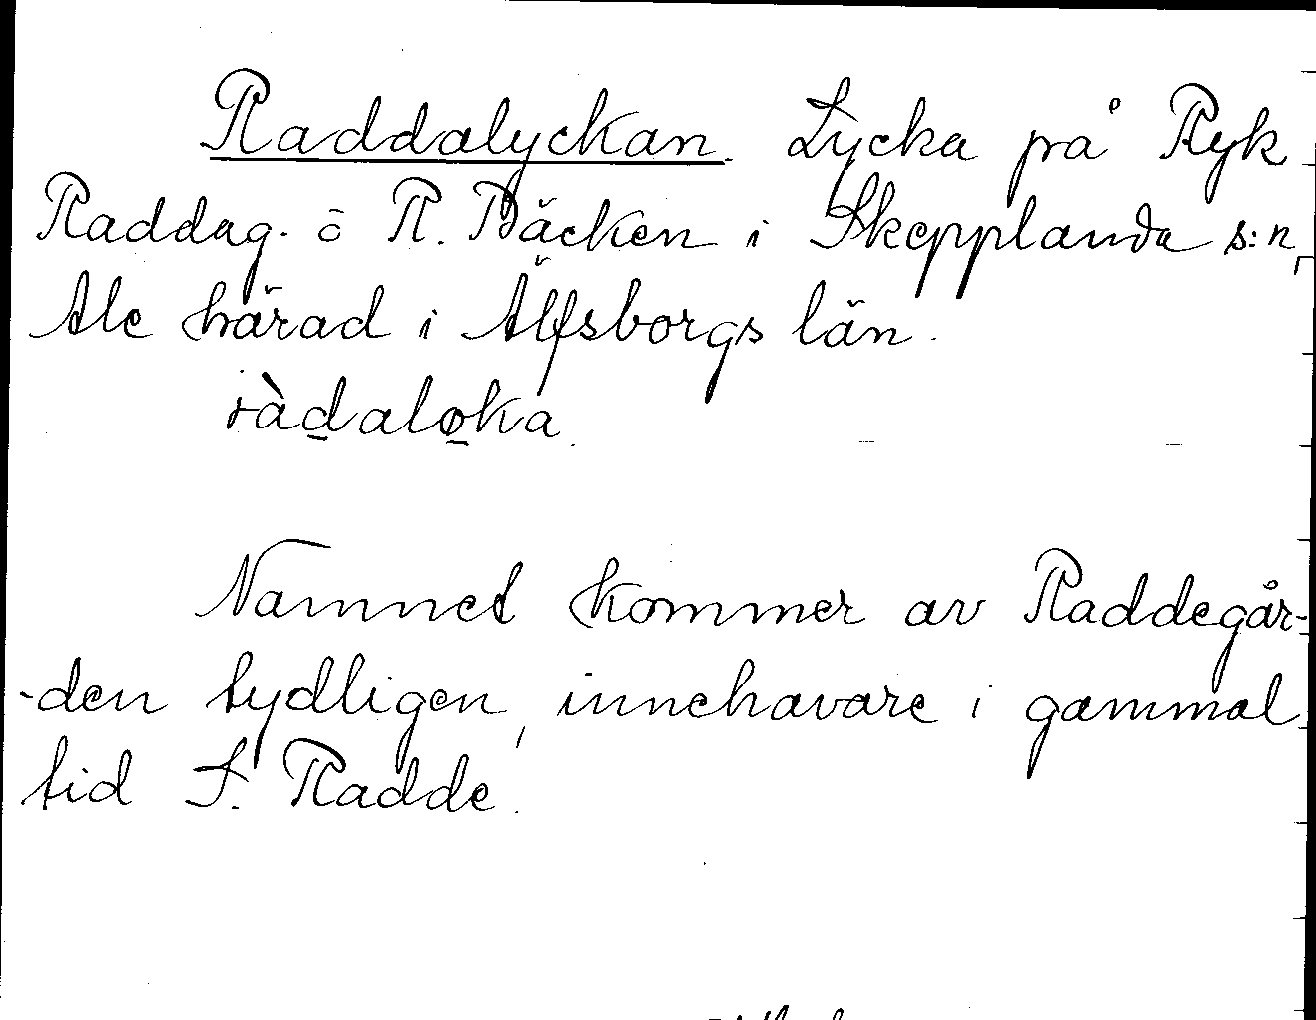 Raddalyckan. Lycka på Ryk
Raddag. ö R. Bäcken i Skepplanda s:n,
Ale härad i Älfsborgs län.
ràdaløka.
Namnet kommer av Raddegår-
-den tydligen, innehavare i gammal
tid S. Radde.